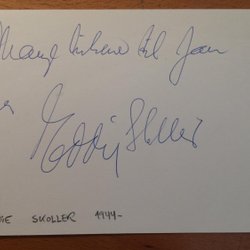 Mange hilsener til Jean
Eddie Skoller
SKOLLER 1944-